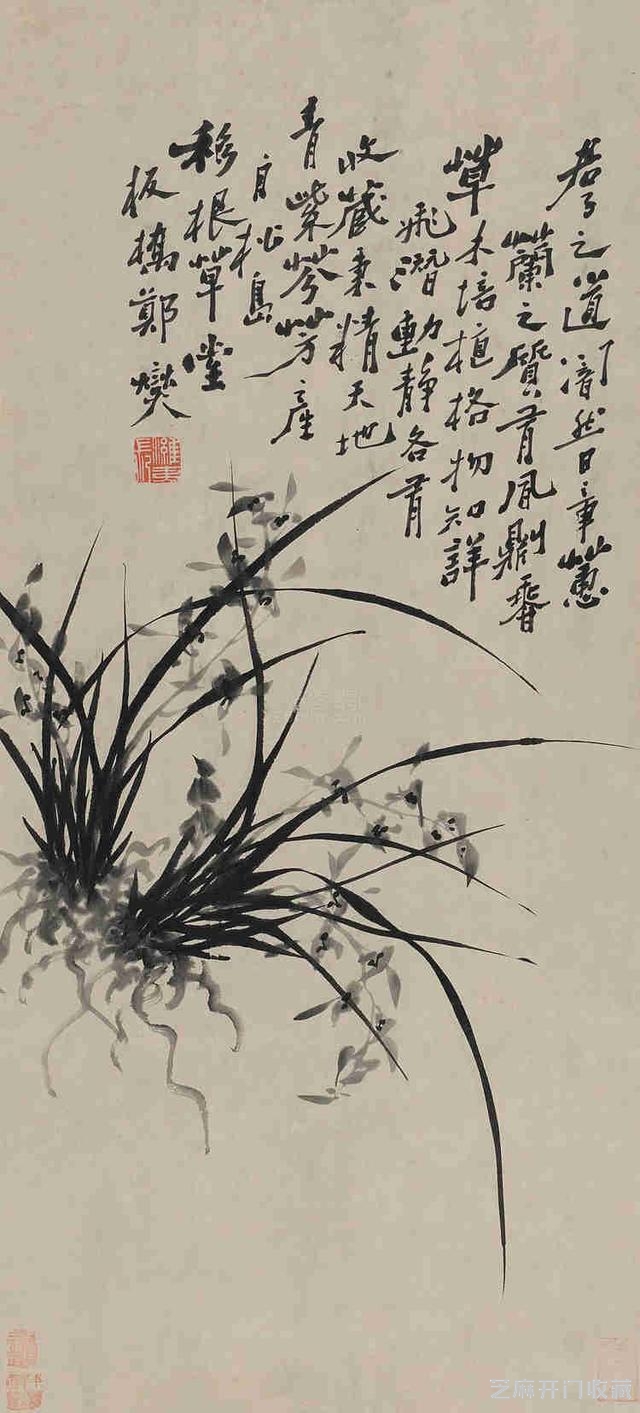 君子之道闇然日章蕙
蘭之質有風劚香
草木培植格物知詳
飛潛動靜各有
收藏秉精天地
青紫芬芳産
自松島
移根草堂
板橋鄭燮
芝麻开门收藏